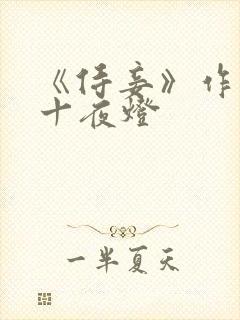 《侍妾》作
十夜燈
一半夏天